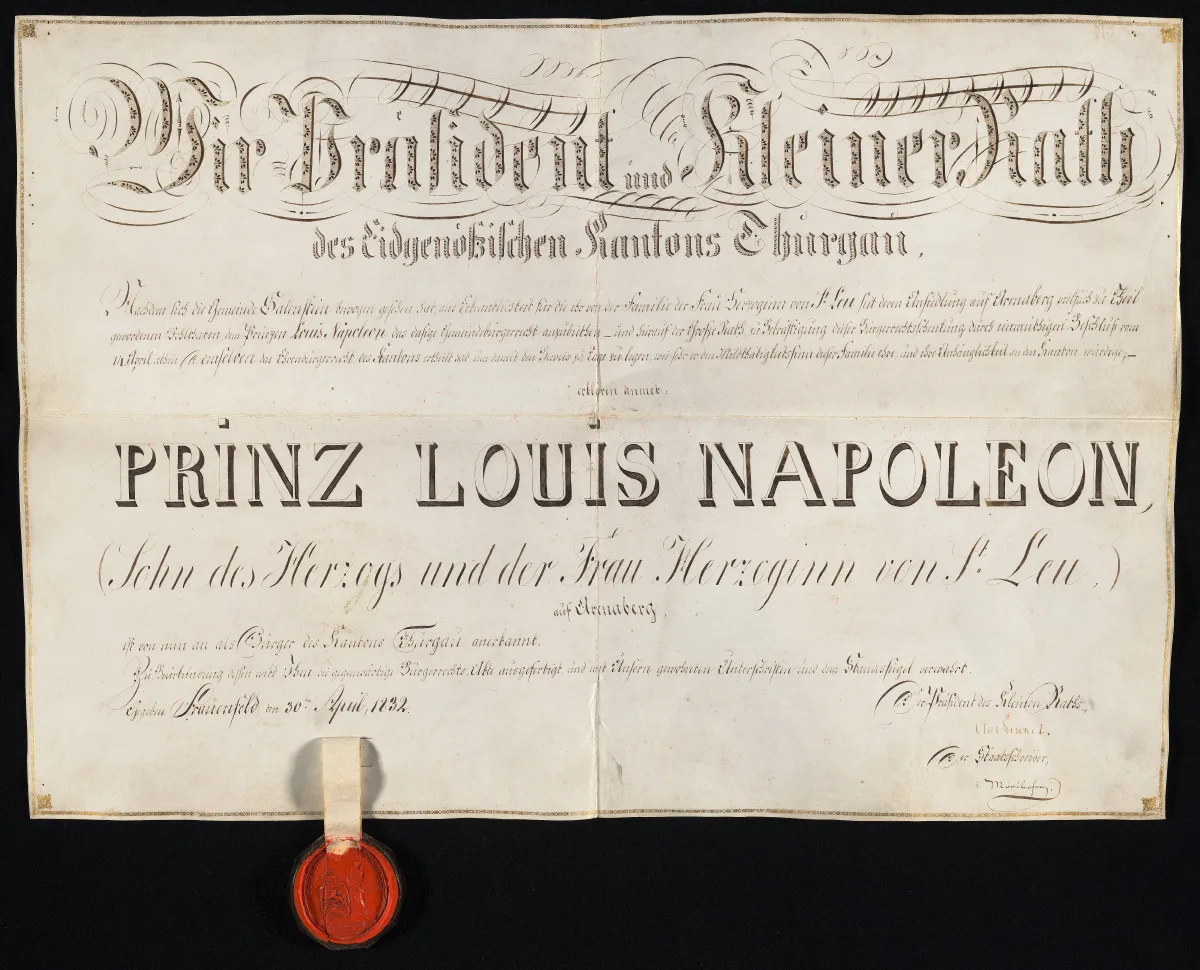 Wir Präsident und Kleiner Rath
des Eidgenößischen Kantons Thurgau,
Nachdem sich die Gemeinde Salenstein bewogen gesehen hat, aus Erkantlichkeit für die ihr von der Familie der Frau Herzoginn von St. Leu seit deren Ansiedlung auf Arenaberg vielfach zu Theil
gewordenen Wohlthaten, dem Prinzen Louis Napoleon, das dasige Gemeindbürgerrecht anzubiethen, und hierauf der Große Rath, zu Bekräftigung dieser Bürgerrechtsschenkung durch einmüthigen Beschluß vom
14 April abhin Demselben das Ehrenbürgerrecht des Kantons ertheilt hat um damit den Beweis zu Tage zu legen, wie sehr er den Wohlthätigkeitssinn dieser Familie ehre, und ihre Anhänglichkeit an den Kanton würdige;
erklären anmit:
PRINZ LOUIS NAPOLEON,
(Sohn des Herzogs und der Frau Herzoginn von St. Leu,)
auf Arenaberg,
ist von nun an als Bürger des Kantons Thurgau anerkannt.
Zu Beurkundung dessen wird Ihm die gegenwärtige Bürgerrechts-Akte ausgefertigt und mit Unsern gewohnten Unterschriften und dem Standessigel verwahrt.
Gegeben Frauenfeld den 30ten April, 1832.
Der Präsident des Kleinen Raths,
Der Staatsschreiber,